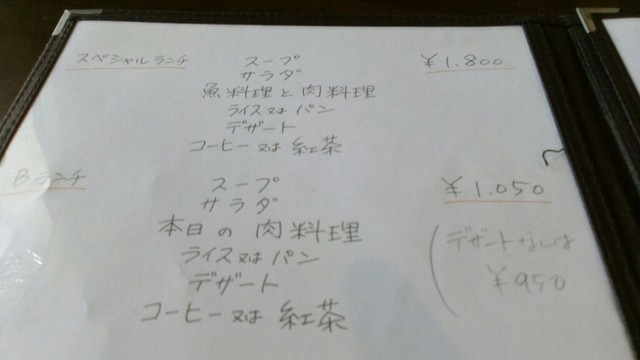 スペシャルランチ スープ ￥1.800
サラダ
魚料理と肉料理
ライス又はパン
デザート
コーヒー又は紅茶
Bランチ スープ ￥1.050
サラダ
本日の肉料理
ライス又はパン
デザート
コーヒー又は紅茶
(デザートなしは
￥950